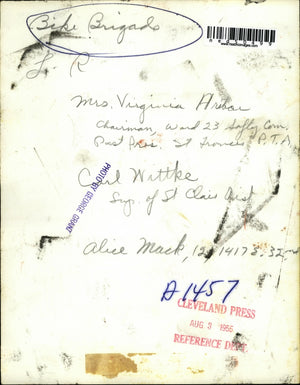 Bike Brigade
L. R
Mrs. Virginia Hrbar
Chairman, Ward 23 Safty Com.
Past Pres. St Francis P.T.A
PHOTO BY GEORGE GRANT
Carl Wittke
Sup. of St Clair Dist
Alice Mack, 12, 1417 E. 32nd
A1457
CLEVELAND PRESS
AUG 3 1956
REFERENCE DEPT.